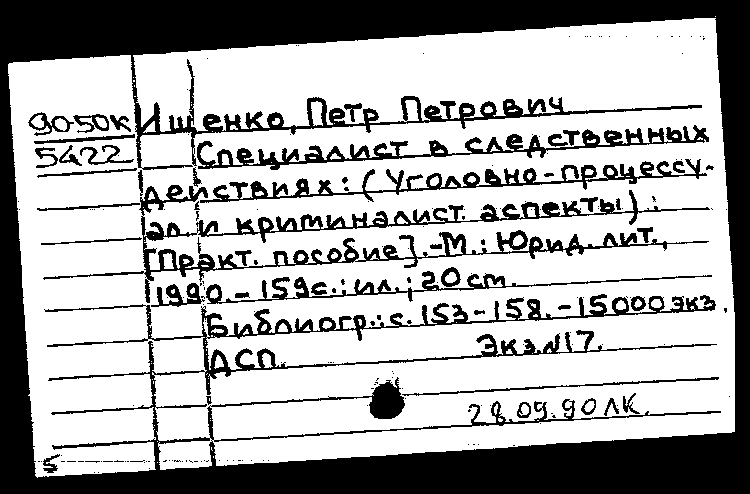 90-50К Ищенко, Петр Петрович
5422 Специалист в следственных
действиях: (Уголовно-процессу-
ал. и криминалист. аспекты):
[Практ. пособие].-М.: Юрид. лит.,
1990.-159с.: ил.; 20 cm.
Библиогр.: с. 153-158.-15000 экз.
ДСП. Экз. №17.
28.09.90 ЛК.
5